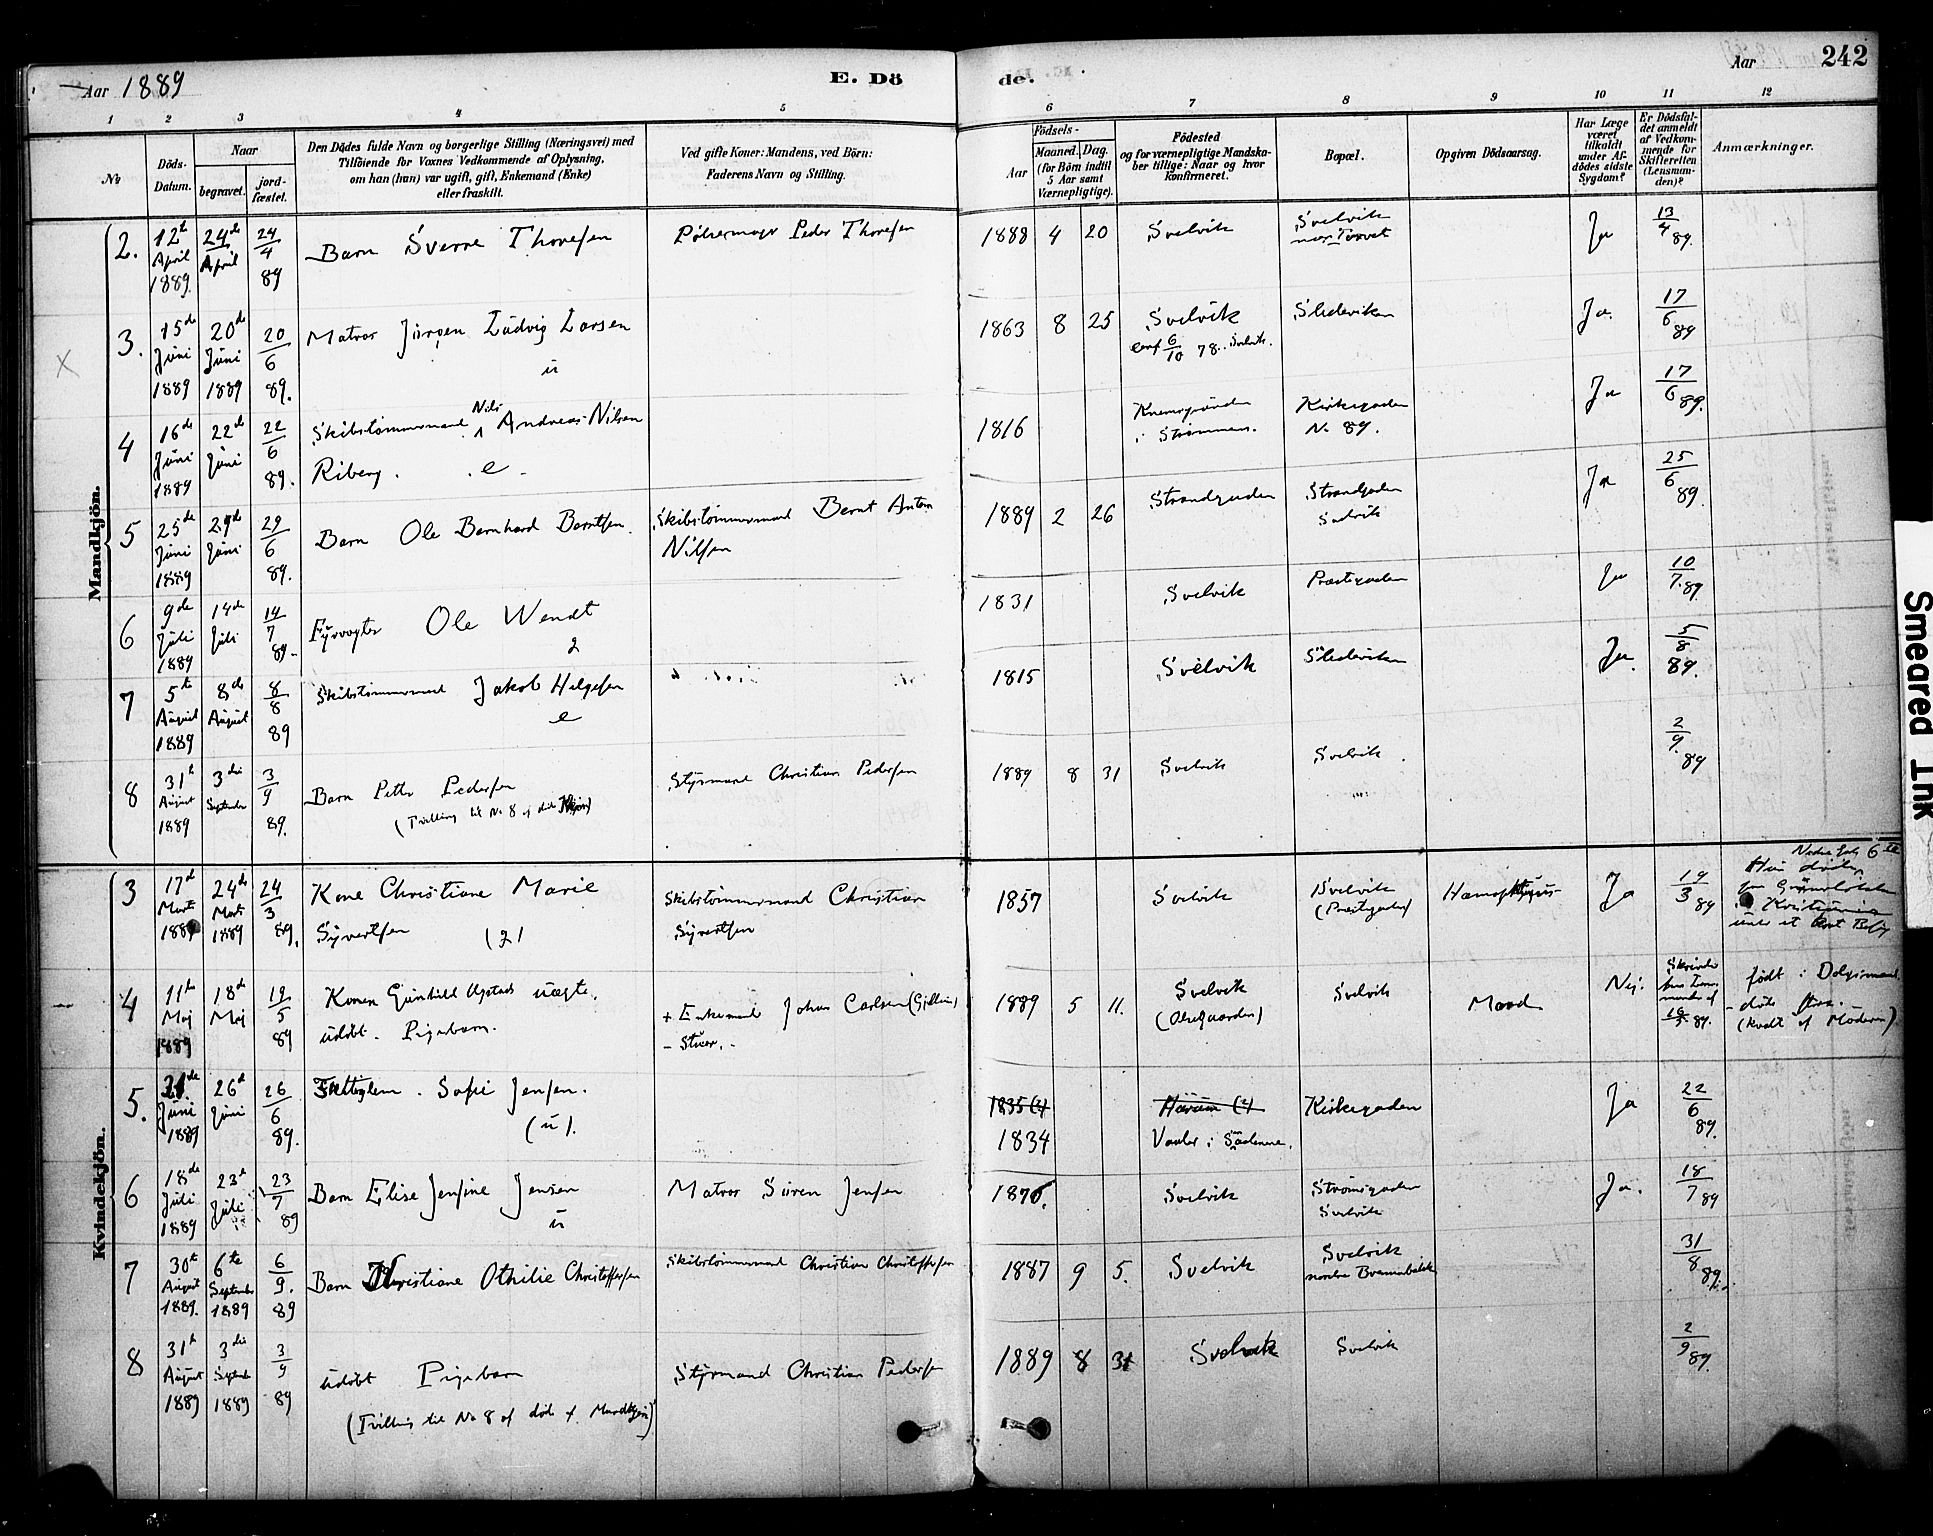 Aar 1889
E. Dö
de.
Aar
242
1 2 3 4 5 6 7 8 9 10 11 12
No
Döds-
Datum.
Naar
begravet.
jord-
fæstet.
Den Dödes fulde Navn og borgerlige Stilling (Næringsvei) med
Tilföiende for Voxnes Vedkommende af Oplysning,
om han (hun) var ugift, gift, Enkemand (Enke)
eller fraskilt.
Ved gifte Koner: Mandens, ved Börn:
Faderens Navn og Stilling.
Födsels-
Aar
Maaned.
Dag.
(for Börn indtil
5 Aar samt
Værnepligtige).
Födested
og for værnepligtige Mandska-
ber tillige: Naar og hvor
konfirmeret.
Bopæl.
Opgiven Dödsaarsag.
Har Læge
været
tilkaldt
under Af-
dödes sidste
Sygdom?
Er Dödsfal-
det anmeldt
af Vedkom-
mende for
Skifteretten
(Lensman-
den)?
Anmærkninger.
Mandkjön.
2. 12te April 1889 24de April 24/4 89 Barn Sverre Thoresen Pølsemager Peder Thoresen 1888 4 20 Svelvik Svelvik Ja 13/4 89.
3. 15de Juni 1889 20de Juni 1889 20/6 89. Matros Jörgen Ludvig Larsen u 1863 8 25 Svelvik conf 6/10 78. Svelvik. Sledeviken Ja. 17/6 89
4 16de Juni 1889 22de Juni 22/6 89. Skibstömmermand Nils Andreas Nilsen Riberg. e 1816 i Strømmen. Kirkegaden No 89. Ja 17/6 89.
5 25de Juni 1889 29de Juni 29/6 89. Barn Ole Bernhard Berntsen Skibstömmermand Bernt Anton Nilsen 1889 2 26 Strandgaden Strandgaden Svelvik Ja 25/6 89.
6 9de Juli 1889 14de Juli 14/7 89. Fyrvogter Ole Wendt g 1831 Svelvik Præstegaden Ja 10/7 89.
7 5te August 1889 8de August 8/8 89 Skibstömmermand Jakob Helgesen e 1815 Svelvik Sledeviken Ja. 5/8 89.
8 31te August 1889 3die September 3/9 89. Barn Petter Pedersen (Tvilling til No 8 af död Kvkjön) Styrmand Christian Pedersen 1889 8 31 Svelvik Svelvik. 2/9 89
Kvindekjön.
3 17de Marts 1889 24de Marts 1889 24/3 89. Kone Christiane Marie Syvertsen (g) Skibstömmermand Christian Syvertsen 1857 Svelvik Svelvik (Præstegaden) Ja 19/3 89 Hun døde Kristiania under et Besøg
4 11te Maj 1889 18de Maj 19/5 89 Konen Gunhild uægte. udöbt. Pigebarn. + Enkemand Johan Carlsen 1889 5 11. Svelvik Svelvik Mord Nej. født i Dølgsmaal (kvalt af Moderen)
5. 21de Juni 1889 26de Juni 26/6 89. Fattiglem. Sofie Jensen. (u). 1835 (?) 1834 Hurum (?) Kirkegaden Ja 22/6 89.
6 18de Juli 1889 23de Juli 23/7 89 Barn Elise Jensine Jensen u Matros Sören Jensen 1876. Svelvik Strömsgaden Svelvik Ja. 18/7 89
7 30te August 1889. 6te September 1889 6/9. 89 Barn Christiane Othilie Christoffersen Skibstömmermand Christian Christoffersen 1887 9 5. Svelvik Svelvik nordre Brænnebakk 31/8 89.
8 31te August 1889 3die Septembr 1889 3/9 89 udöbt Pigebarn (Tvilling til No 8 af död f. Mandkjön) Styrmand Christian Pedersen 1889 8 31 Svelvik Svelvik 2/9 89.
Smeared Ink